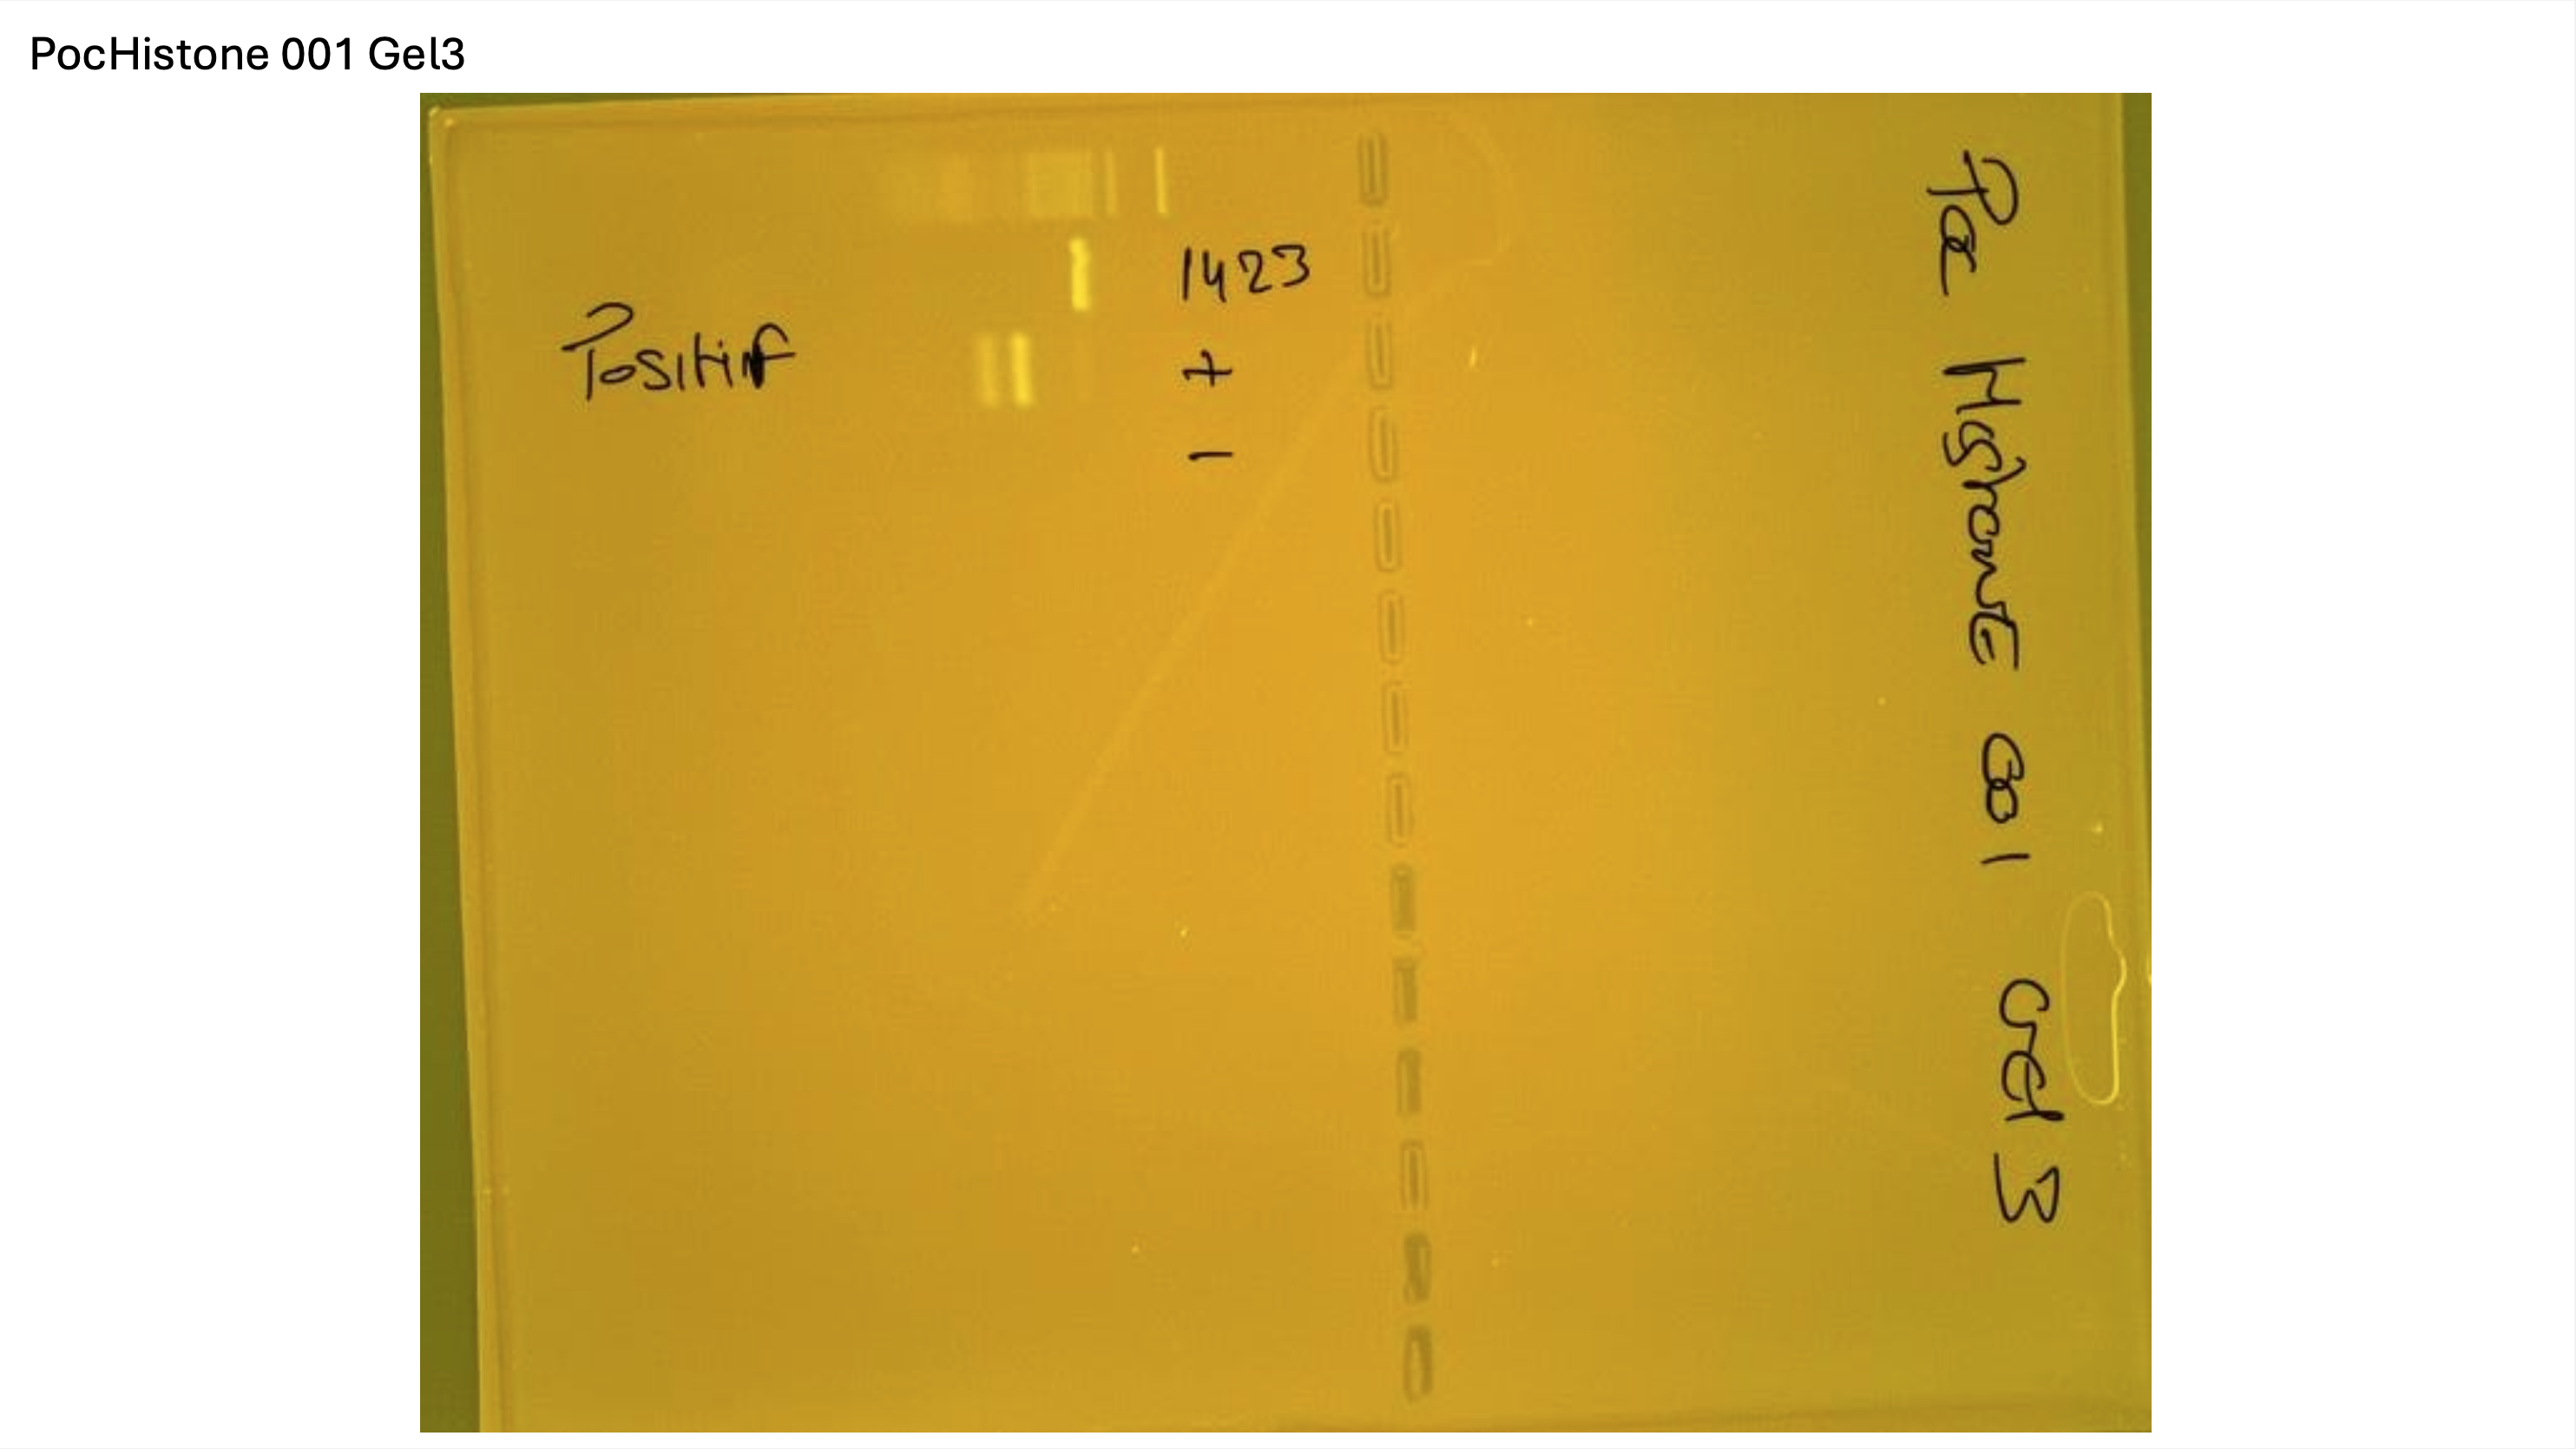 PocHistone 001 Gel3
1423
Positif
+
-
Poc HistonE 001 Gel 3